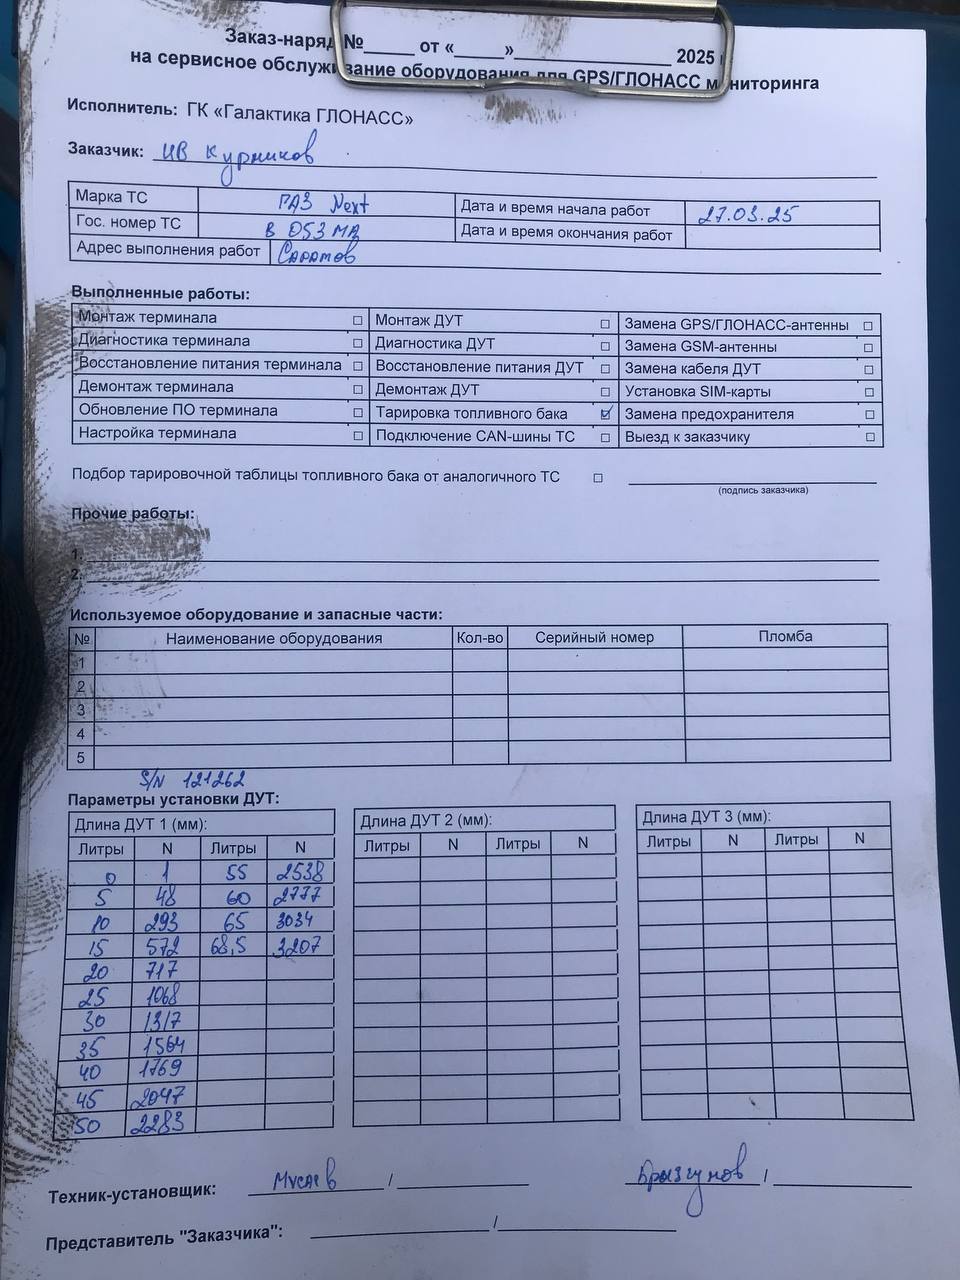 Заказ-наряд №_____ от «_____»________________ 2025
на сервисное обслуживание оборудования для GPS/ГЛОНАСС мониторинга
Исполнитель: ГК «Галактика ГЛОНАСС»
Заказчик: ИВ Курников
Марка ТС ГАЗ Next Дата и время начала работ 27.03.25
Гос. номер ТС В 053 МА Дата и время окончания работ
Адрес выполнения работ Саратов
Выполненные работы:
Монтаж терминала □ Монтаж ДУТ □ Замена GPS/ГЛОНАСС-антенны □
Диагностика терминала □ Диагностика ДУТ □ Замена GSM-антенны □
Восстановление питания терминала □ Восстановление питания ДУТ □ Замена кабеля ДУТ □
Демонтаж терминала □ Демонтаж ДУТ □ Установка SIM-карты □
Обновление ПО терминала □ Тарировка топливного бака ☑ Замена предохранителя □
Настройка терминала □ Подключение CAN-шины ТС □ Выезд к заказчику □
Подбор тарировочной таблицы топливного бака от аналогичного ТС □
(подпись заказчика)
Прочие работы:
1.
2.
Используемое оборудование и запасные части:
№ Наименование оборудования Кол-во Серийный номер Пломба
1
2
3
4
5
S/N 121262
Параметры установки ДУТ:
Длина ДУТ 1 (мм): Длина ДУТ 2 (мм): Длина ДУТ 3 (мм):
Литры N Литры N Литры N Литры N Литры N Литры N
0 1 55 2538
5 48 60 2777
10 293 65 3034
15 572 68,5 3207
20 717
25 1068
30 1317
35 1564
40 1769
45 2047
50 2283
Техник-установщик: Мусаев / Брызгунов /
Представитель "Заказчика": /